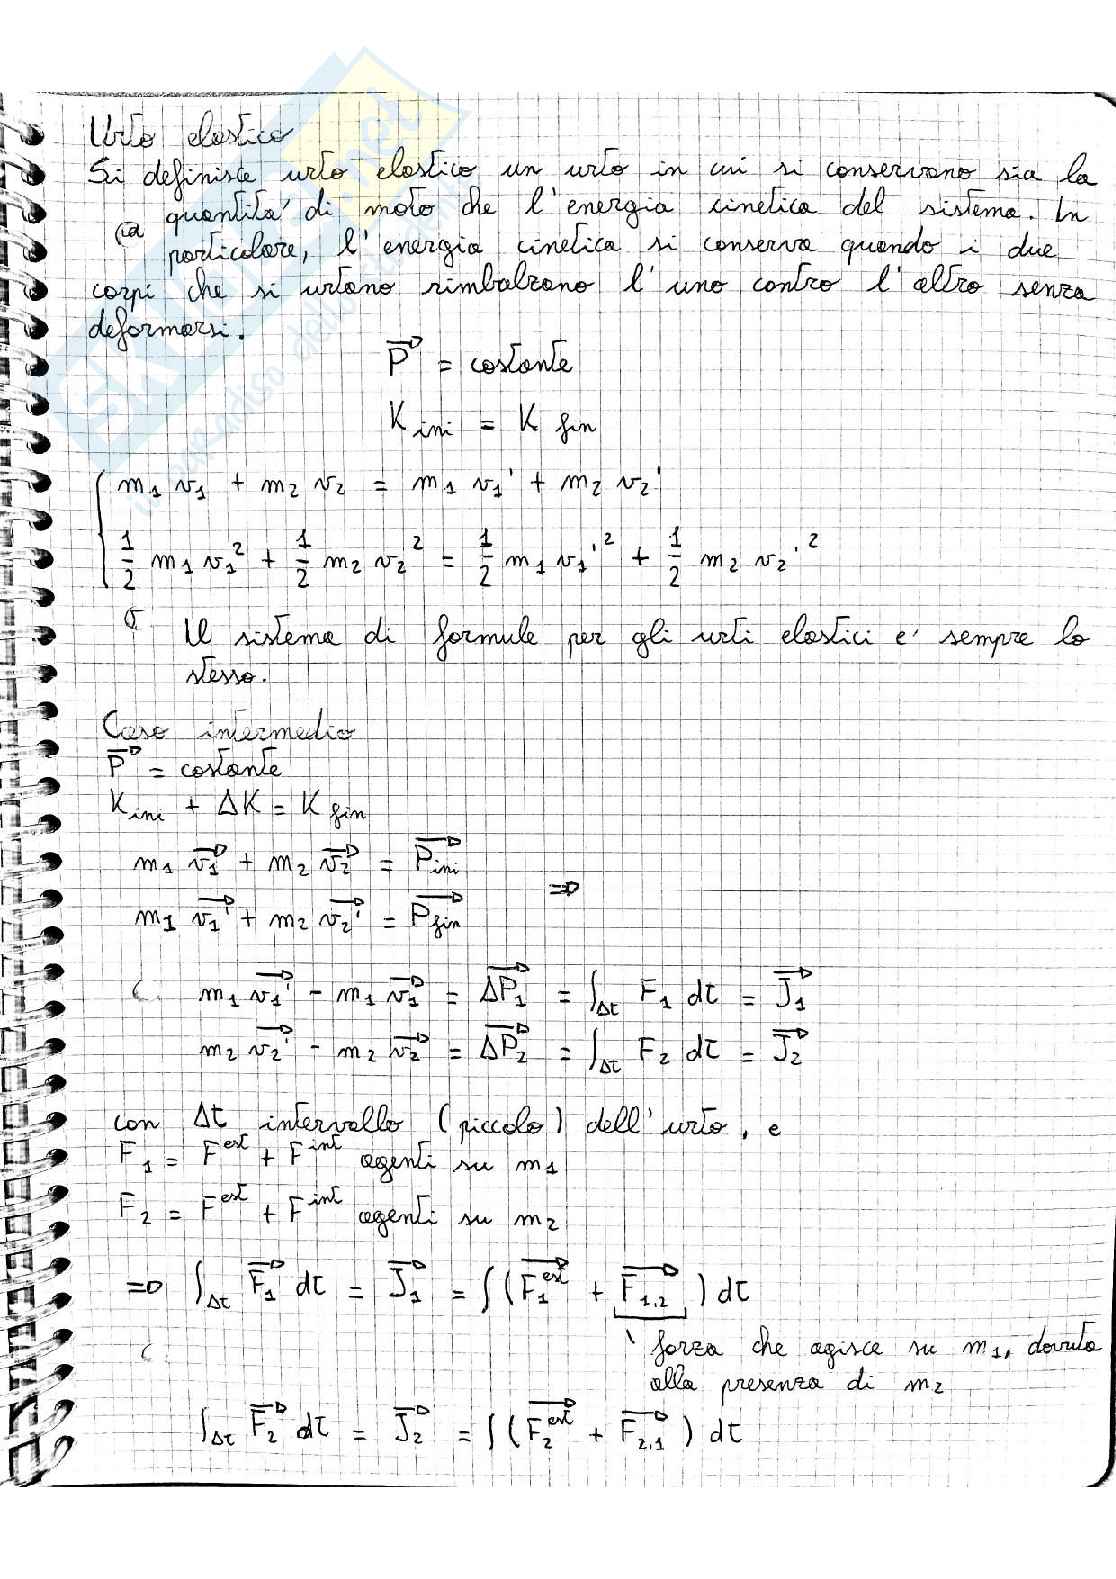 Urto elastico
Si definisce urto elastico un urto in cui si conservano sia la
quantità di moto che l'energia cinetica del sistema. In
particolare, l'energia cinetica si conserva quando i due
corpi che si urtano rimbalzano l'uno contro l'altro senza
deformarsi.
P⃗ = costante
K ini = K fin
m₁ v₁ + m₂ v₂ = m₁ v₁' + m₂ v₂'
1/2 m₁ v₁² + 1/2 m₂ v₂² = 1/2 m₁ v₁'² + 1/2 m₂ v₂'²
Il sistema di formule per gli urti elastici e' sempre lo
stesso.
Caso intermedio
P⃗ = costante
K ini + ΔK = K fin
m₁ v₁⃗ + m₂ v₂⃗ = P⃗ini
⇒
m₁ v₁'⃗ + m₂ v₂'⃗ = P⃗fin
m₁ v₁'⃗ - m₁ v₁⃗ = ΔP₁⃗ = ∫Δt F₁ dt = J₁⃗
m₂ v₂'⃗ - m₂ v₂⃗ = ΔP₂⃗ = ∫Δt F₂ dt = J₂⃗
con Δt intervallo (piccolo) dell'urto, e
F₁ = F^est + F^int agenti su m₁
F₂ = F^est + F^int agenti su m₂
⇒ ∫Δt F₁⃗ dt = J₁⃗ = ∫(F₁^est⃗ + F₁,₂⃗) dt
forza che agisce su m₁, dovuta
alla presenza di m₂
∫Δt F₂⃗ dt = J₂⃗ = ∫(F₂^est⃗ + F₂,₁⃗) dt